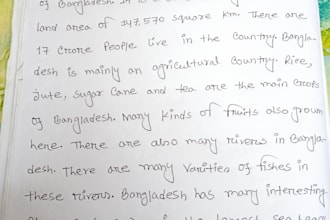 of Bangladesh. It is a
land area of 147.570 square km. There are
17 Crore People live in the Country. Bangla-
desh is mainly an agricultural Country. Rice,
jute, sugar Cane and tea are the main Crops
of Bangladesh. Many kinds of fruits also grown
here. There are also many rivers in Bangla-
desh. There are many Varities of fishes in
these rivers. Bangladesh has many interesting